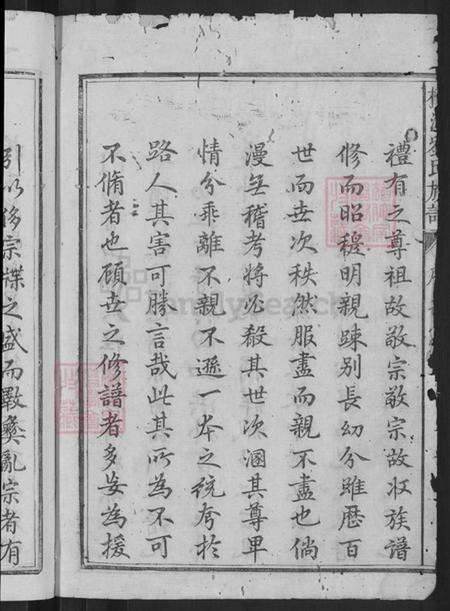 禮有之尊祖故敬宗敬宗故收族譜
修而昭穆明親踈別長幼分雖歷百
世而世次秩然服盡而親不盡也倘
漫無稽考將必殺其世次溷其尊卑
情分乖離不親不遜一本之統夸於
路人其害可勝言哉此其所為不可
不脩者也顧世之修譜者多妄為援
引以侈宗牒之盛而斁彝亂宗者有
familysearch